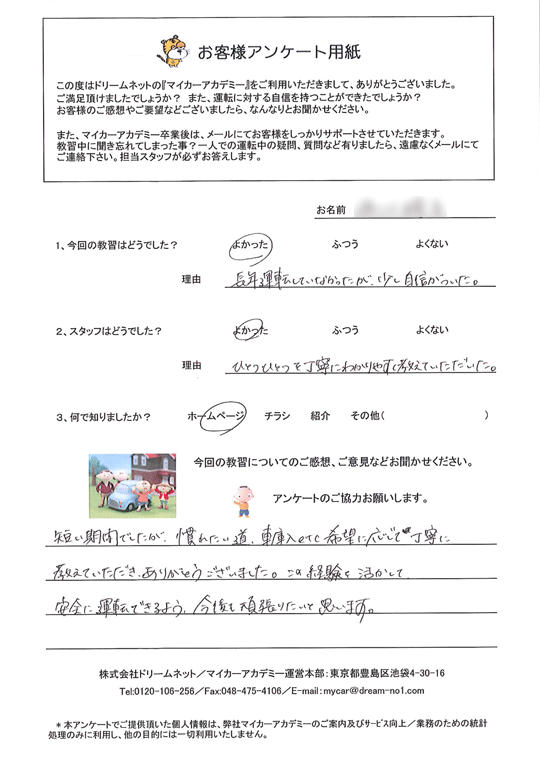 お客様アンケート用紙
この度はドリームネットの『マイカーアカデミー』をご利用いただきまして、ありがとうございました。
ご満足頂けましたでしょうか？ また、運転に対する自信を持つことができたでしょうか？
お客様のご感想やご要望などございましたら、なんなりとお聞かせください。
また、マイカーアカデミー卒業後は、メールにてお客様をしっかりサポートさせていただきます。
教習中に聞き忘れてしまった事？一人での運転中の疑問、質問など有りましたら、遠慮なくメールにて
ご連絡下さい。担当スタッフが必ずお答えします。
お名前
1、今回の教習はどうでした？ よかった ふつう よくない
理由 長年運転していなかったが、少し自信がついた。
2、スタッフはどうでした？ よかった ふつう よくない
理由 ひとつひとつを丁寧にわかりやすく教えていただいた。
3、何で知りましたか？ ホームページ チラシ 紹介 その他( )
今回の教習についてのご感想、ご意見などお聞かせください。
アンケートのご協力お願いします。
短い期間でしたが、慣れたい道、車庫入etc 希望に応じて丁寧に
教えていただき、ありがとうございました。この経験を活かして
安全に運転できるよう、今後も頑張りたいと思います。
株式会社ドリームネット／マイカーアカデミー運営本部：東京都豊島区池袋4-30-16
Tel:0120-106-256／Fax:048-475-4106／E-mail:mycar@dream-no1.com
＊本アンケートでご提供頂いた個人情報は、弊社マイカーアカデミーのご案内及びサービス向上／業務のための統計
処理のみに利用し、他の目的には一切利用いたしません。